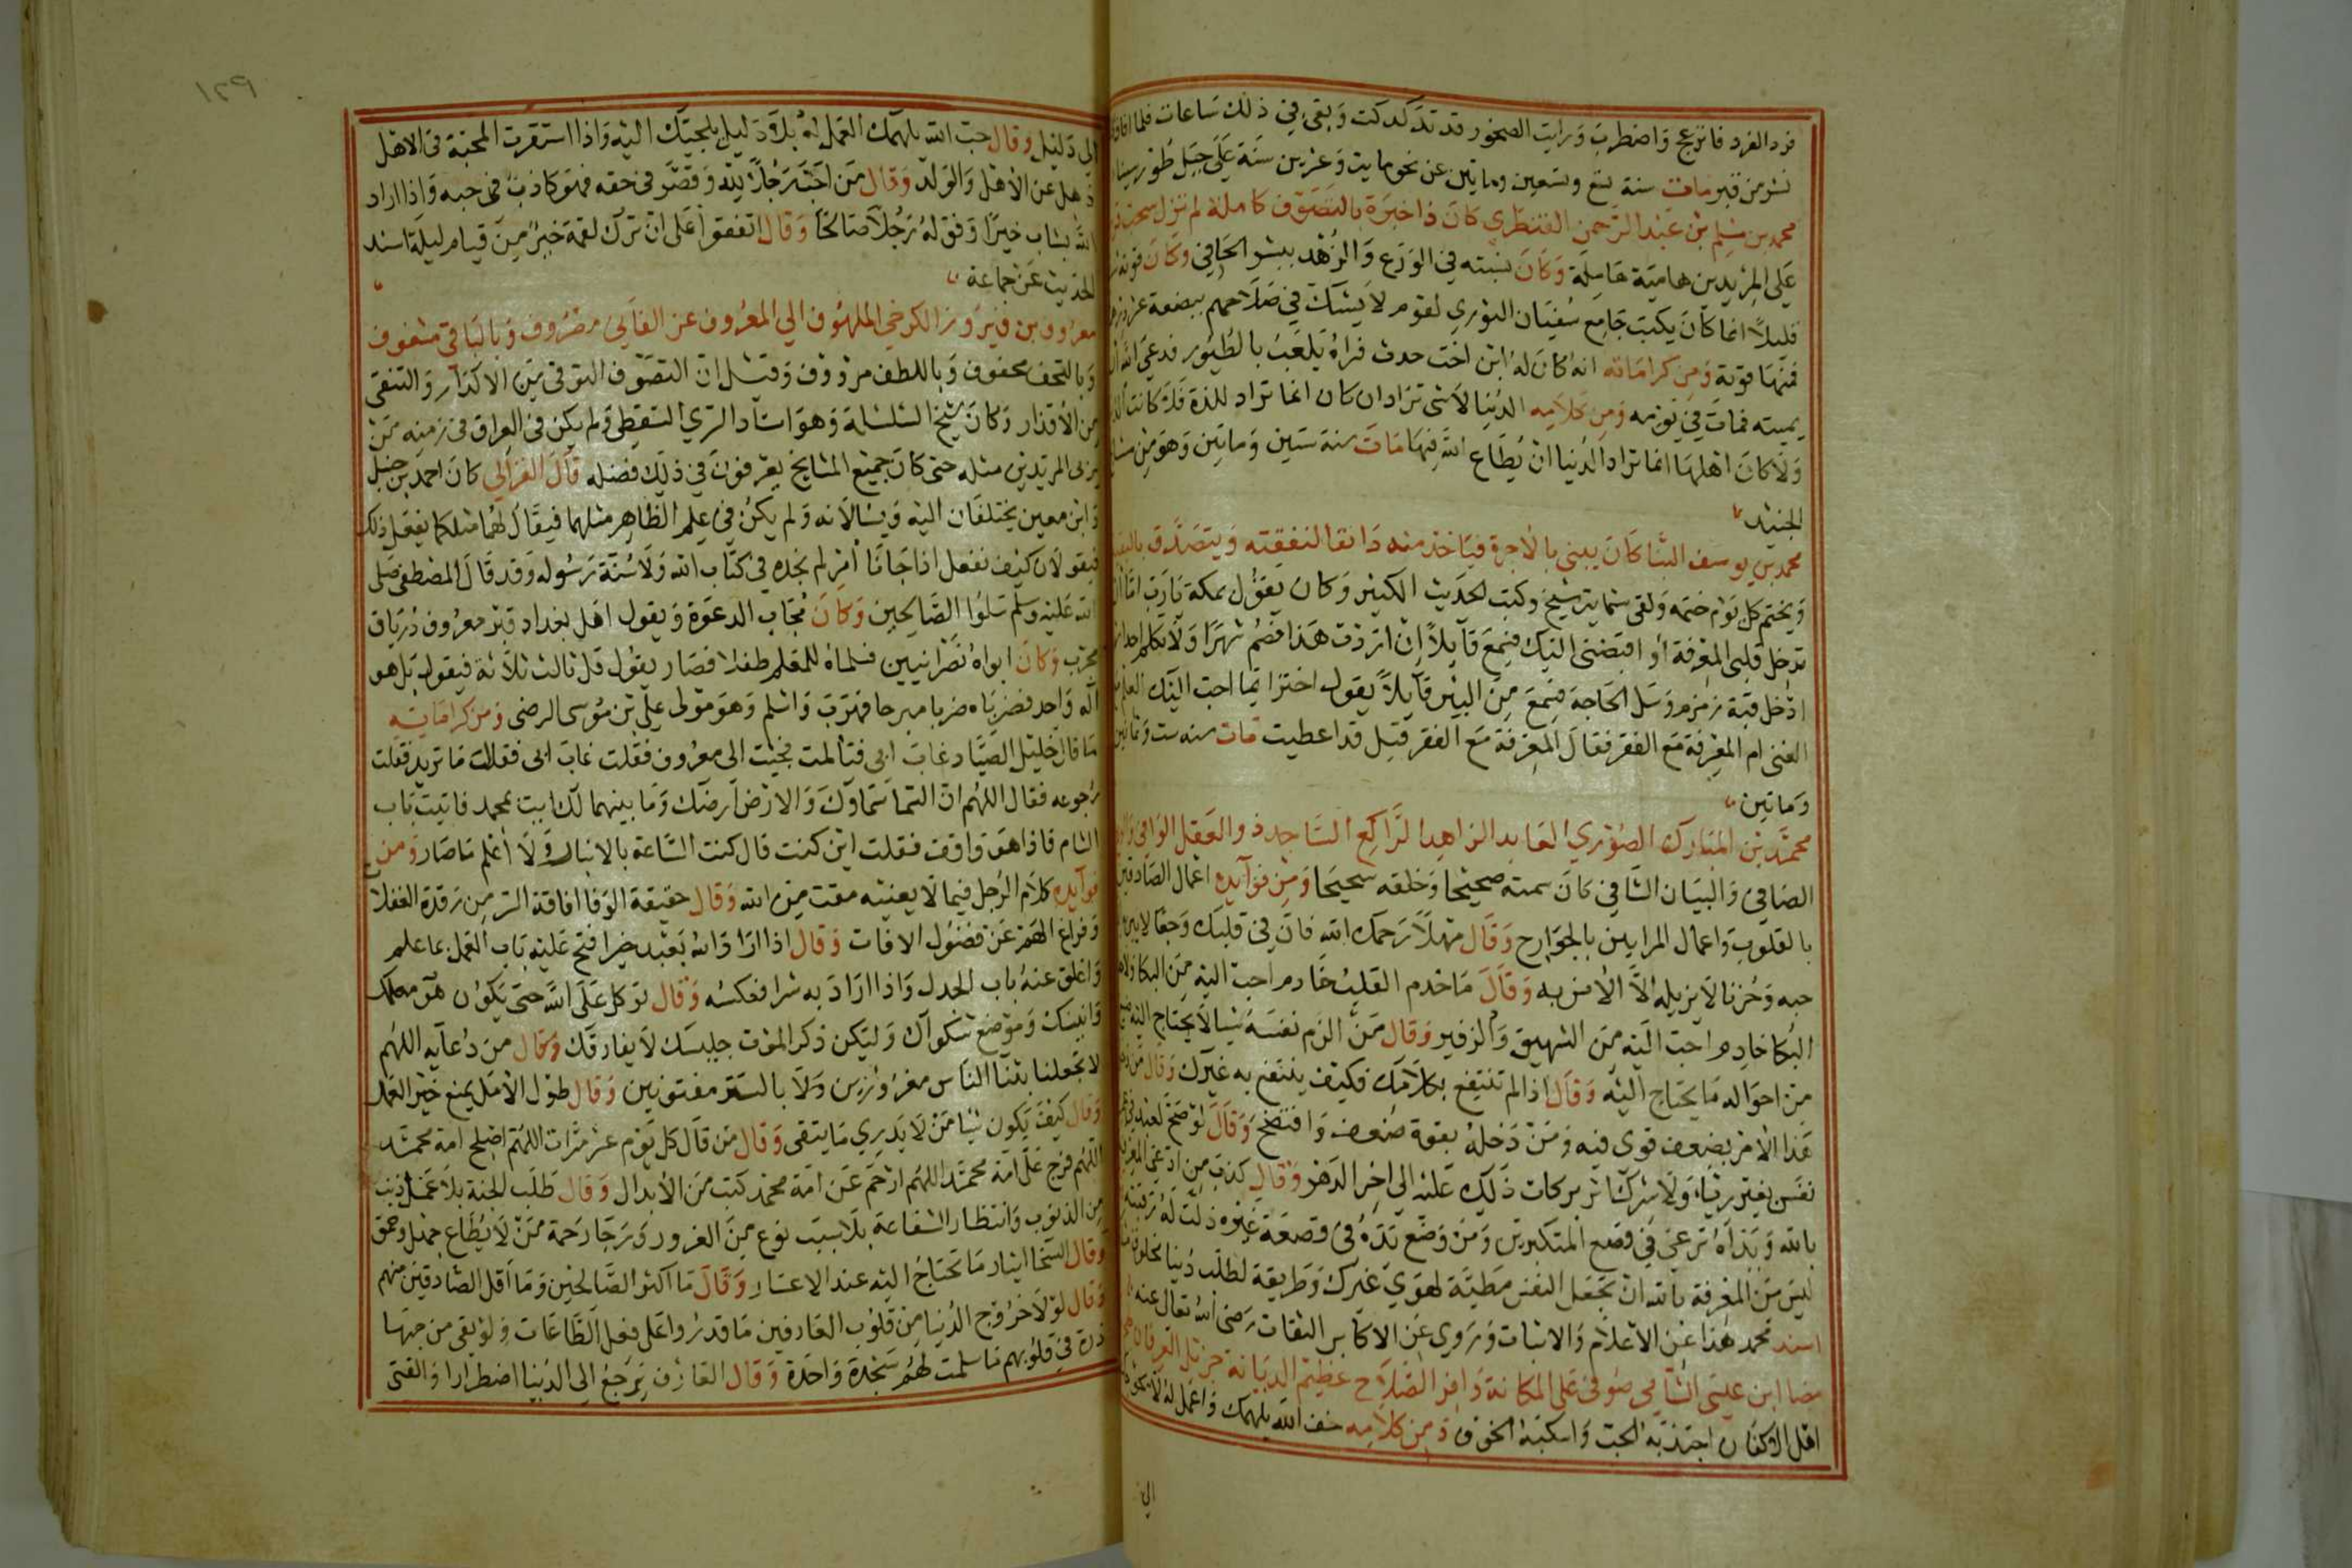 فرد الفرد فانزعج واضطرب ورايت الصخور قد تدكدكت وبقي في ذلك ساعات فلما افاق
نشر من قبر مات سنة تسع وتسعين وماتين عن نحو مايت وعشرين سنة على جبل طور سينا
محمد بن مسلم بن عبد الرحمن القنطري كان ذا خبرة بالتصوف كاملة لم تزل سحب
على المريدين هامية هاملة وكان يشبه في الورع والزهد ببشر الحافي وكان قوته
قليلا انما كان يكتب جامع سفيان الثوري لقوم لا يشك في صلاحهم ببضعة عشر درهما
فمنها قوته ومن كراماته انه كان له ابن اخت حدث فراه يلعب بالطيور فدعى الله ان
يميته فمات في يومه ومن كلامه الدنيا لاشي تراد ان كان انما تراد للذة فلا كانت الدنيا
ولا كان اهلها انما تراد الدنيا ان يطاع الله فيها مات سنة ستين وماتين وهو من مشايخ
الجنيد
محمد بن يوسف البنا كان يبني بالاجرة فياخذ منه دانقا لنفقته ويتصدق بالبقية
ويختم كل يوم ختمه ولقي ستماية شيخ وكتب الحديث الكثير وكان يقول بمكة يارب اما ان
تدخل قلبي المعرفة او اقبضني اليك فسمع قايلا ان اردت هذا فصم شهرا ولا تكلم احدا ثم
ادخل قبة زمزم وسل الحاجة فسمع من البير قايلا يقول اختر ايما احب اليك العلم مع
الغنى ام المعرفة مع الفقر فقال المعرفة مع الفقر قيل قد اعطيت مات سنه ست وثمانين
وماتين
محمد بن المبارك الصوري العابد الزاهد الراكع الساجد ذو العقل الوافي
الصافي والبيان الشافي كان سمته صحيحا وخلقه سحيحا ومن فوايده اعمال الصادقين
بالقلوب واعمال المرايين بالجوارح وقال مهلا رحمك الله فان في قلبك وجعا لا يبريه
حبه وحزنا لا يزيله الا الانس به وقال ما خدم القلب خادم احب اليه من البكا ولا
البكا خادم احب اليه من الشهيق والزفير وقال من الزم نفسه شيا لا يحتاج اليه ضيع
من احواله ما يحتاج اليه وقال اذا لم تنتفع بكلامك فكيف ينتفع به غيرك وقال من
هذا الامر بضعف قوي فيه ومن دخله بقوة ضعف وافتضح وقال لو صح لعبد في
نفس بغير رياء ولا شرك اثر بركات ذلك عليه الي اخر الدهر وقال كذب من ادعى المعرفة
بالله ويداه ترعى في قصع المتكبرين ومن وضع يده في قصعة غيره ذلت له رقبته
ليس من المعرفة بالله ان تجعل النفس مطية لهوي غيرك وطريقة لطلب دنيا مخلوق
اسند محمد هذا عن الاعلام والاثبات وروي عن الاكابر الثقات رضي الله تعالى عنه
مضا ابن عيسى الشامي صوفي علي المكانة وافر الصلاح عظيم الديانة جزيل العرفان
اقل الاكفان اجتذبه الحب واسكبته الخوف ومن كلامه خف الله يلهمك واعمل له لا يحوجك
الى
١٢٩
الي دليل وقال حب الله يلهمك العمل له بلا دليل يلجيك اليه واذا استقرت المحبة في الاهل
ذهل عن الاهل والولد وقال من احب رجلا لله وقصر في حقه فهو كاذب في حبه واذا اراد
الله بشاب خيرا وفق له رجلا صالحا وقال اتفقوا على ان ترك لقمة خير من قيام ليلة اسند
الحديث عن جماعة
معروف بن فيروز الكرخي الملهوف الي المعروف عن الفاني مصروف وبالباقي مشغوف
وبالتحف محفوف وباللطف مردوف وقيل ان التصوف التوقي من الاكدار والتنقي
من الاقذار وكان شيخ السلسلة وهو استاد السري السقطي ولم يكن في العراق في زمنه من
يربي المريدين مثله حتى كان جميع المشايخ يعرفون في ذلك فضله قال الغزالي كان احمد بن حنبل
وابن معين يختلفان اليه ويسالانه ولم يكن في علم الظاهر مثلهما فيقال لهما مثلكما يفعل ذلك
فيقولان كيف نفعل اذا جانا امر لم نجده في كتاب الله ولا سنة رسوله وقد قال المصطفى صلى
الله عليه وسلم سلوا الصالحين وكان مجاب الدعوة ويقول اهل بغداد قبر معروف درياق
مجرب وكان ابواه نصرانيين فسلماه للمعلم طفلا فصار يقول قل ثالث ثلاثة فيقول بل هو
اله واحد فضرباه ضربا مبرحا فهرب واسلم وهو مولى علي بن موسى الرضى ومن كراماته
ما قال خليل الصياد غاب ابي فتالمت فجيت الى معروف فقلت غاب ابى فقال ما تريد فقلت
رجوعه فقال اللهم ان السما سماوك والارض ارضك وما بينهما لك ايت بمحمد فاتيت باب
الشام فاذا هو واقف فقلت اين كنت قال كنت الساعة بالانبار ولا اعلم ما صار ومن
فوايده كلام الرجل فيما لا يعنيه مقت من الله وقال حقيقة الوفا افاقة السر من رقدة الغفلة
وفراغ الهم عن فضول الافات وقال اذا اراد الله بعبد خيرا فتح عليه باب العمل بما علم
واغلق عنه باب الجدل واذا اراد به شرا فعكسه وقال توكل على الله حتى يكون هو معلمك
وانيسك وموضع شكواك وليكن ذكر الموت جليسك لا يفارقك وقال من دعايه اللهم
لا تجعلنا بثنا الناس مغرورين ولا بالستر مفتونين وقال طول الامل يمنع خير العمل
وقال كيف يكون نبيا من لا يدري ما يتقى وقال من قال كل يوم عشر مرات اللهم اصلح امة محمد
اللهم فرج على امة محمد اللهم ارحم عن امة محمد كتب من الابدال وقال طلب الجنة بلا عمل ذنب
من الذنوب وانتظار الشفاعة بلا سبب نوع من الغرور ورجا رحمة من لا يطاع جهل وحمق
وقال السخا ايثار ما تحتاج اليه عند الاعسار وقال ما اكثر الصالحين وما اقل الصادقين منهم
وقال لولا خروج الدنيا من قلوب العارفين ما قدروا على فعل الطاعات ولو بقي من حبها
ذرة في قلوبهم ما سلمت لهم سجدة واحدة وقال العارف يرجع الى الدنيا اضطرارا والفتى